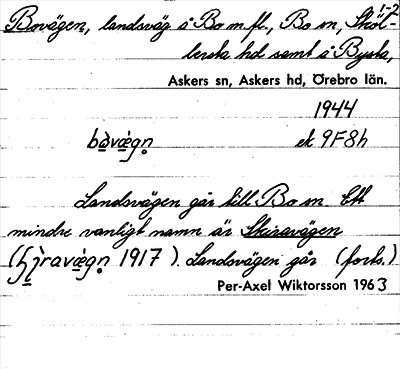 1-2
Bovägen, landsväg å Bo m.fl., Bo sn, Sköl-
lersta hd samt å Bysta,
Askers sn, Askers hd, Örebro län.
1944
ek 9F8h
Landsvägen går till Bo sn. Ett
mindre vanligt namn är Skiravägen
1917). Landsvägen går (forts.)
Per-Axel Wiktorsson 1963